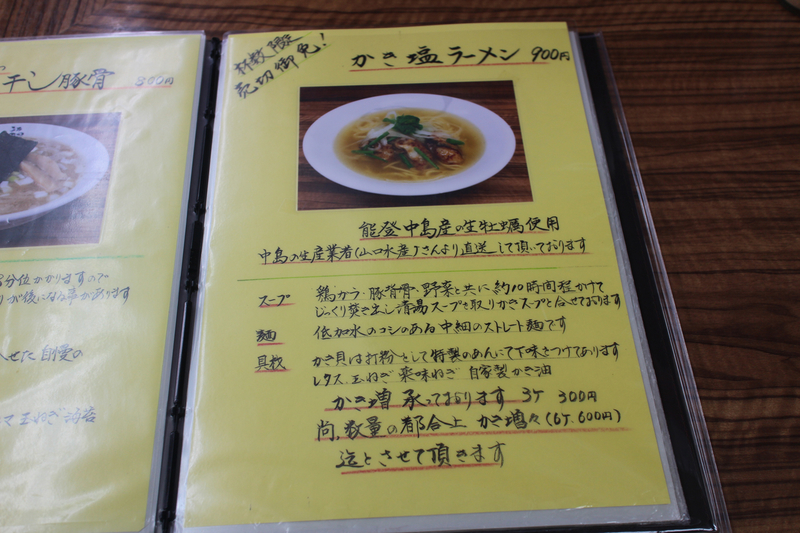 干し豚骨 800円
分位かかりますので
が後になる事があります
せた自慢の
マ 玉ねぎ 海苔
杯数限定
売切御免!
かき塩ラーメン 900円
能登中島産の生牡蠣使用
中島の生産業者(山口水産)さんより直送して頂いております
スープ 鶏ガラ・豚背骨・野菜と共に約10時間程かけて
じっくり焚き出し清湯スープを取りかきスープと合せております
麺 低加水のコシのある中細のストレート麺です
具材 かき貝は打粉をして特製のあんにて下味をつけてあります
レタス 玉ねぎ 薬味ねぎ 自家製かき油
かき増 承っております 3ケ 300円
尚、数量の都合上 かき増々(6ケ.600円)
迄とさせて頂きます